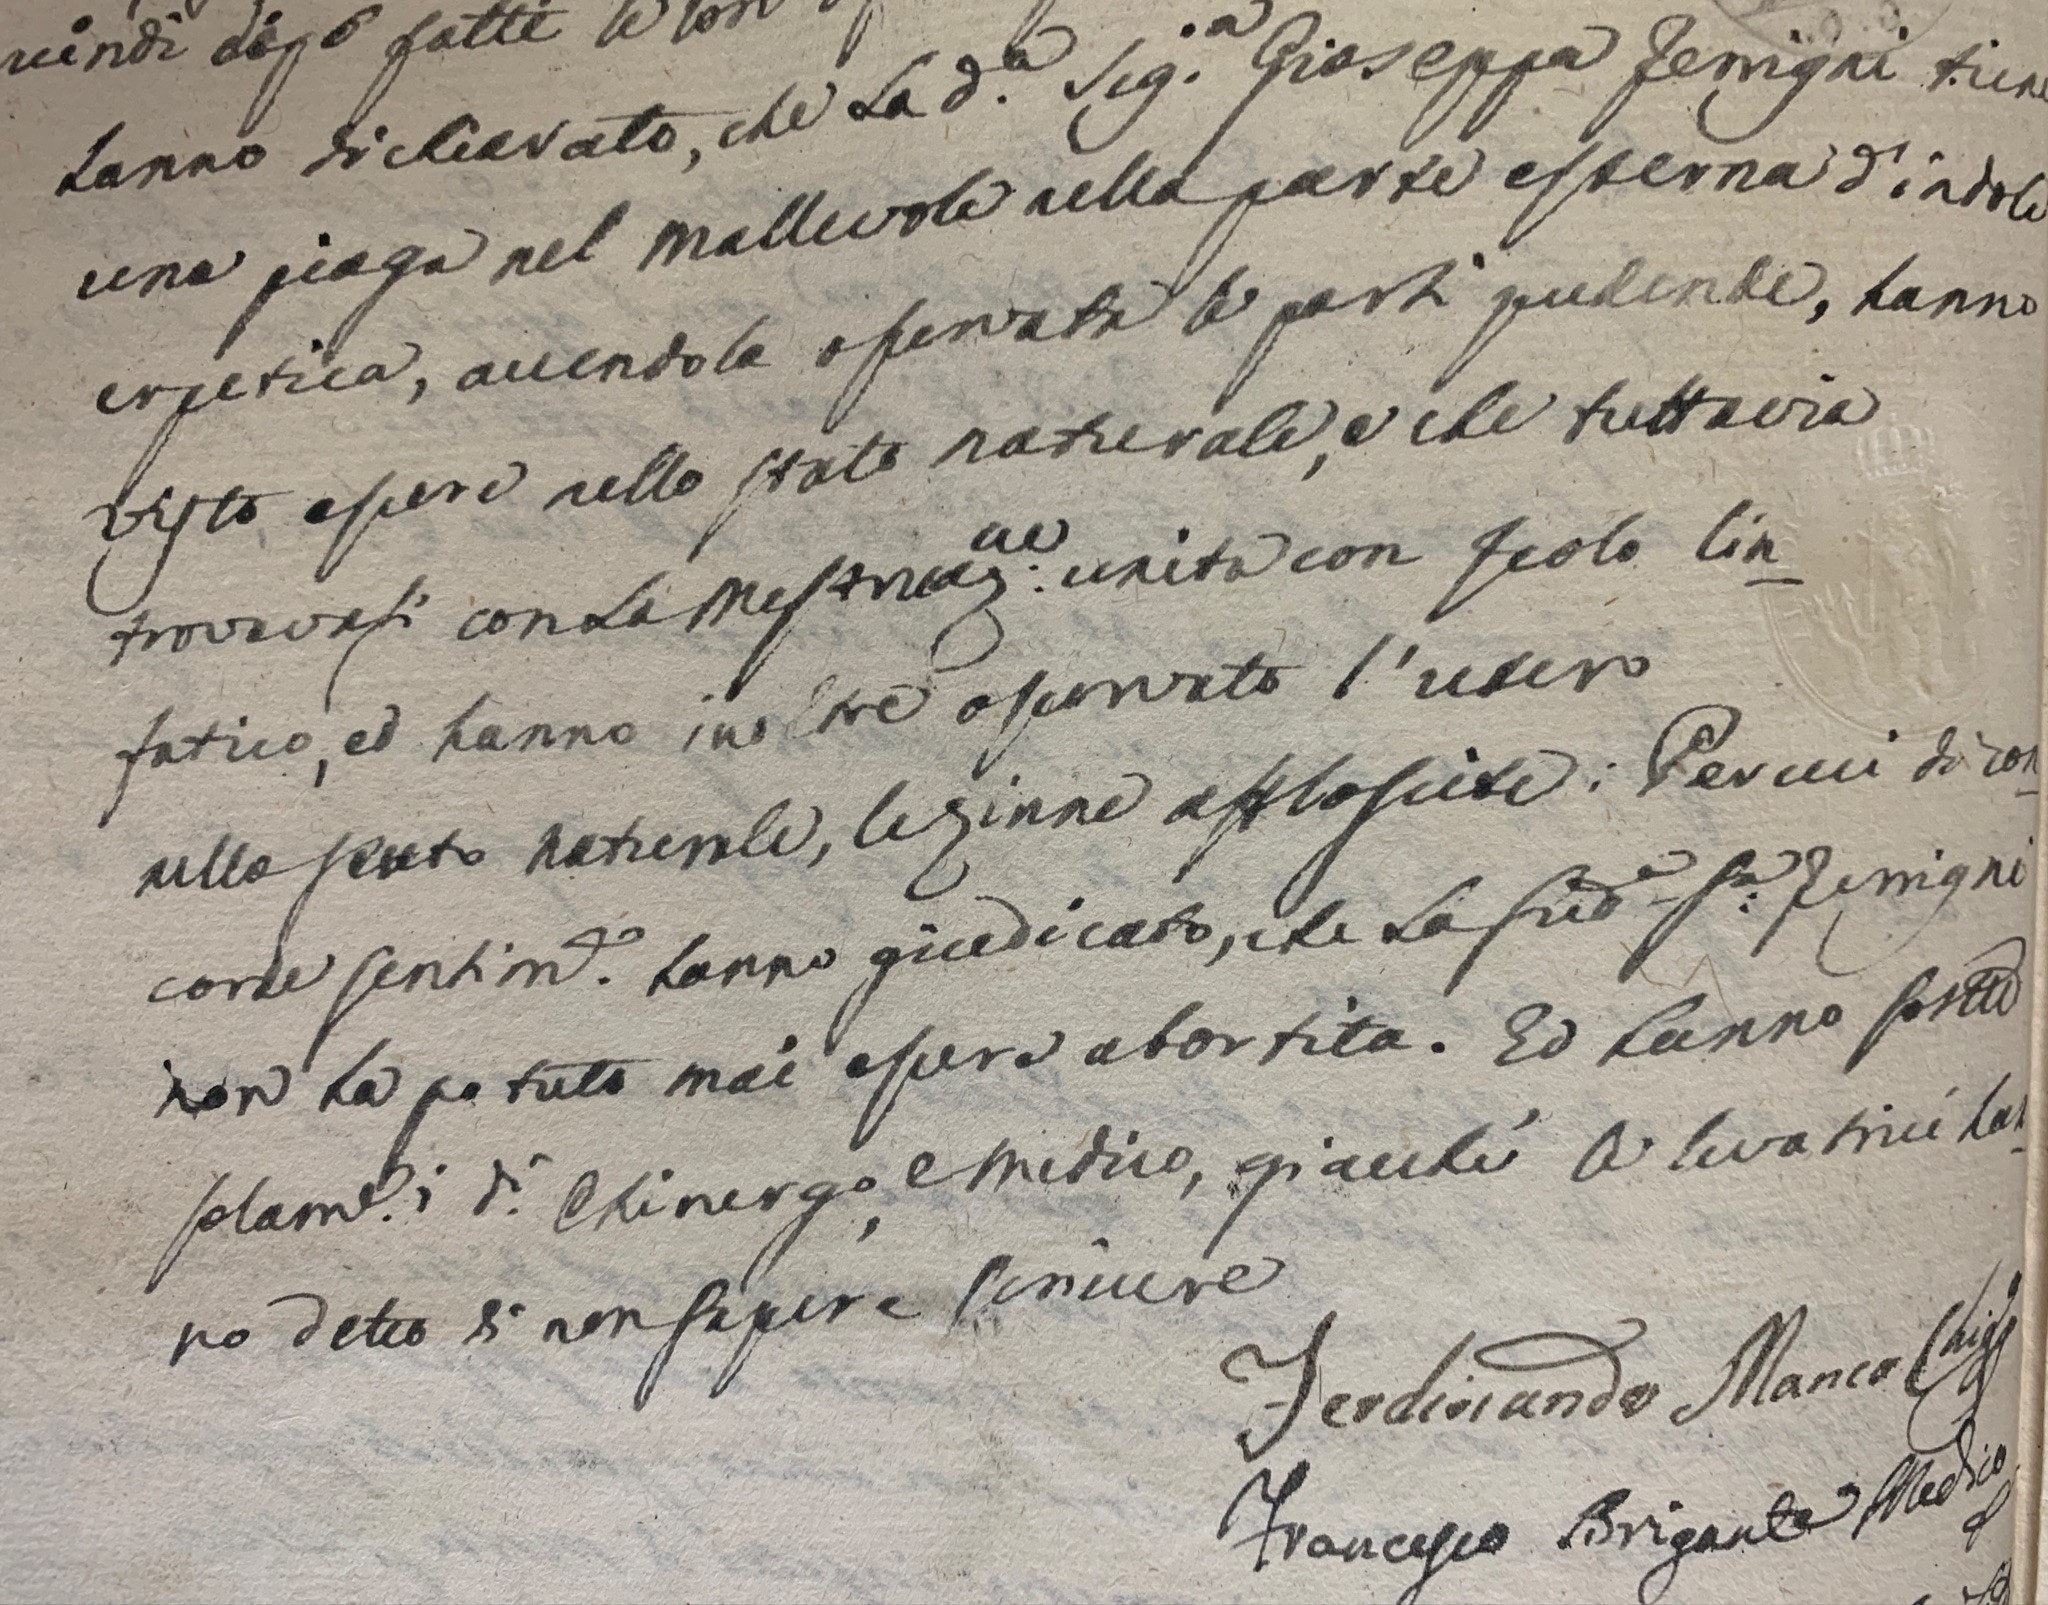 dopo fatte le
hanno dichiarato, che la d.a Sig.a Gioseppa Jerrigni tiene
una piaga nel mallevole nella parte esterna d'indole
erpetica, avendola osservata le parti pudende, hanno
visto essere nello stato naturale, e che tuttavia
trovavasi con la mestruaz.ne unita con scolo lin-
fatico, ed hanno inoltre osservato l'utero
nello stato naturale, le zinne afflascite: Percui di con-
corde sentim.to hanno giudicato, che la sud.a S.ra Jerrigni
non ha potuto mai essere abortita. Ed hanno sotto
solam.e i d.i Chirurgo, e Medico, giacché le levatrici han-
no detto di non sapere scrivere
Ferdinando Manca
Francesco Brigante Medico